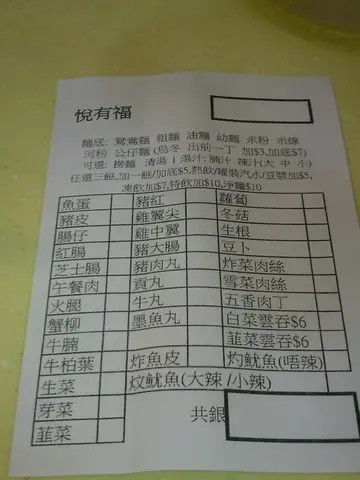 悅有福
麵底: 鴛鴦麵 粗麵 油麵 幼麵 米粉 米線
河粉 公仔麵 (烏冬 出前一丁 加$3,加底$7)
可選: 撈麵 清湯 | 湯汁: 腩汁 辣汁(大 中 小)
任選三餸,加一餸/加底$5,熱飲/罐裝汽水/豆漿加$5,
凍飲加$7,特飲加$10,淨麵$10
魚蛋 豬紅 蘿蔔
豬皮 雞翼尖 冬菇
腸仔 雞中翼 生根
紅腸 豬大腸 豆卜
芝士腸 豬肉丸 炸菜肉絲
午餐肉 貢丸 雪菜肉絲
火腿 牛丸 五香肉丁
蟹柳 墨魚丸 白菜雲吞$6
牛腩 韮菜雲吞$6
牛柏葉 炸魚皮 灼魷魚(唔辣)
生菜 炆魷魚(大辣 /小辣)
芽菜
韮菜 共銀